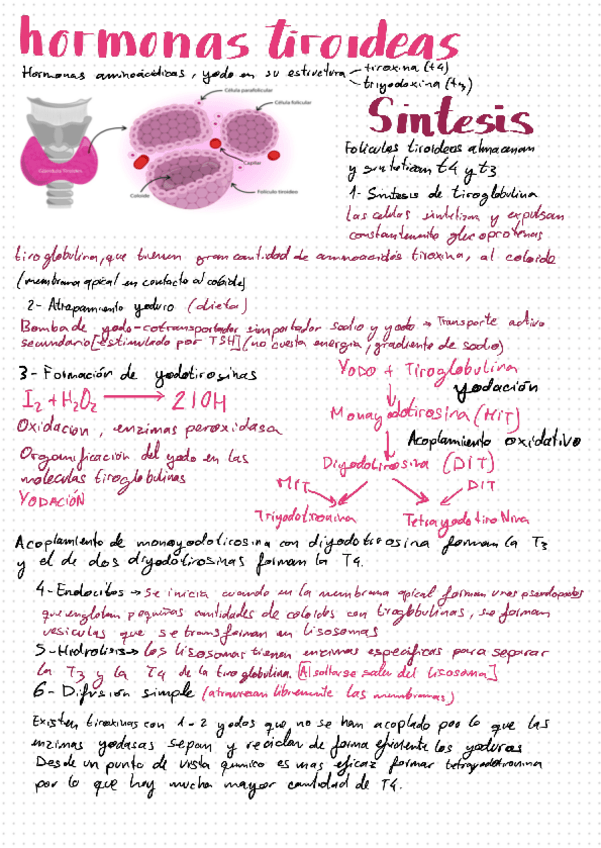 hormonas tiroideas
Hormonas aminoacídicas, yodo en su estructura
tiroxina (t4)
triyodoxina (t3)
Célula parafolicular
Célula folicular
Glándula tiroides
Capilar
Coloide
Folículo tiroideo
Síntesis
Folículos tiroideos almacenan
y sintetizan t4 y t3
1- Síntesis de tiroglobulina
Las células sintetizan y expulsan
constantemente glucoproteínas
tiroglobulina, que tienen gran cantidad de aminoacidos tiroxina, al coloide
(membrana apical en contacto al coloide)
2- Atrapamiento yoduro (dieta)
Bomba de yodo-cotransportador simportador sodio y yodo → Transporte activo
secundario [estimulado por TSH] (no cuesta energia, gradiente de sodio)
3- Formación de yodotirosinas
I2 + H2O2 → 2IOH
Oxidacion, enzimas peroxidasa
Organificación del yodo en las
moleculas tiroglobulinas
YODACIÓN
YODO + Tiroglobulina
yodación
Monoyodotirosina (MIT)
Acoplamiento oxidativo
Diyodotirosina (DIT)
MIT
DIT
Triyodotironina
Tetrayodotironina
Acoplamiento de monoyodotirosina con diyodotirosina forman la T3
y el de dos diyodotirosinas forman la T4.
4- Endocitos → Se inicia cuando en la membrana apical forman unos pseudopodos
que engloban pequeñas cantidades de coloides con tiroglobulinas, se forman
vesiculas que se transforman en lisosomas
5- Hidrolisis → Los lisosomas tienen enzimas especificas para separar
la T3 y la T4 de la tiroglobulina. [Al soltarse salen del lisosoma]
6- Difusión simple (atraviesan libremente las membranas)
Existen tiroxinas con 1-2 yodos que no se han acoplado por lo que las
enzimas yodasas separan y reciclan de forma eficiente los yoduros
Desde un punto de vista quimico es mas eficaz formar tetrayodotironina
por lo que hay mucha mayor cantidad de T4.